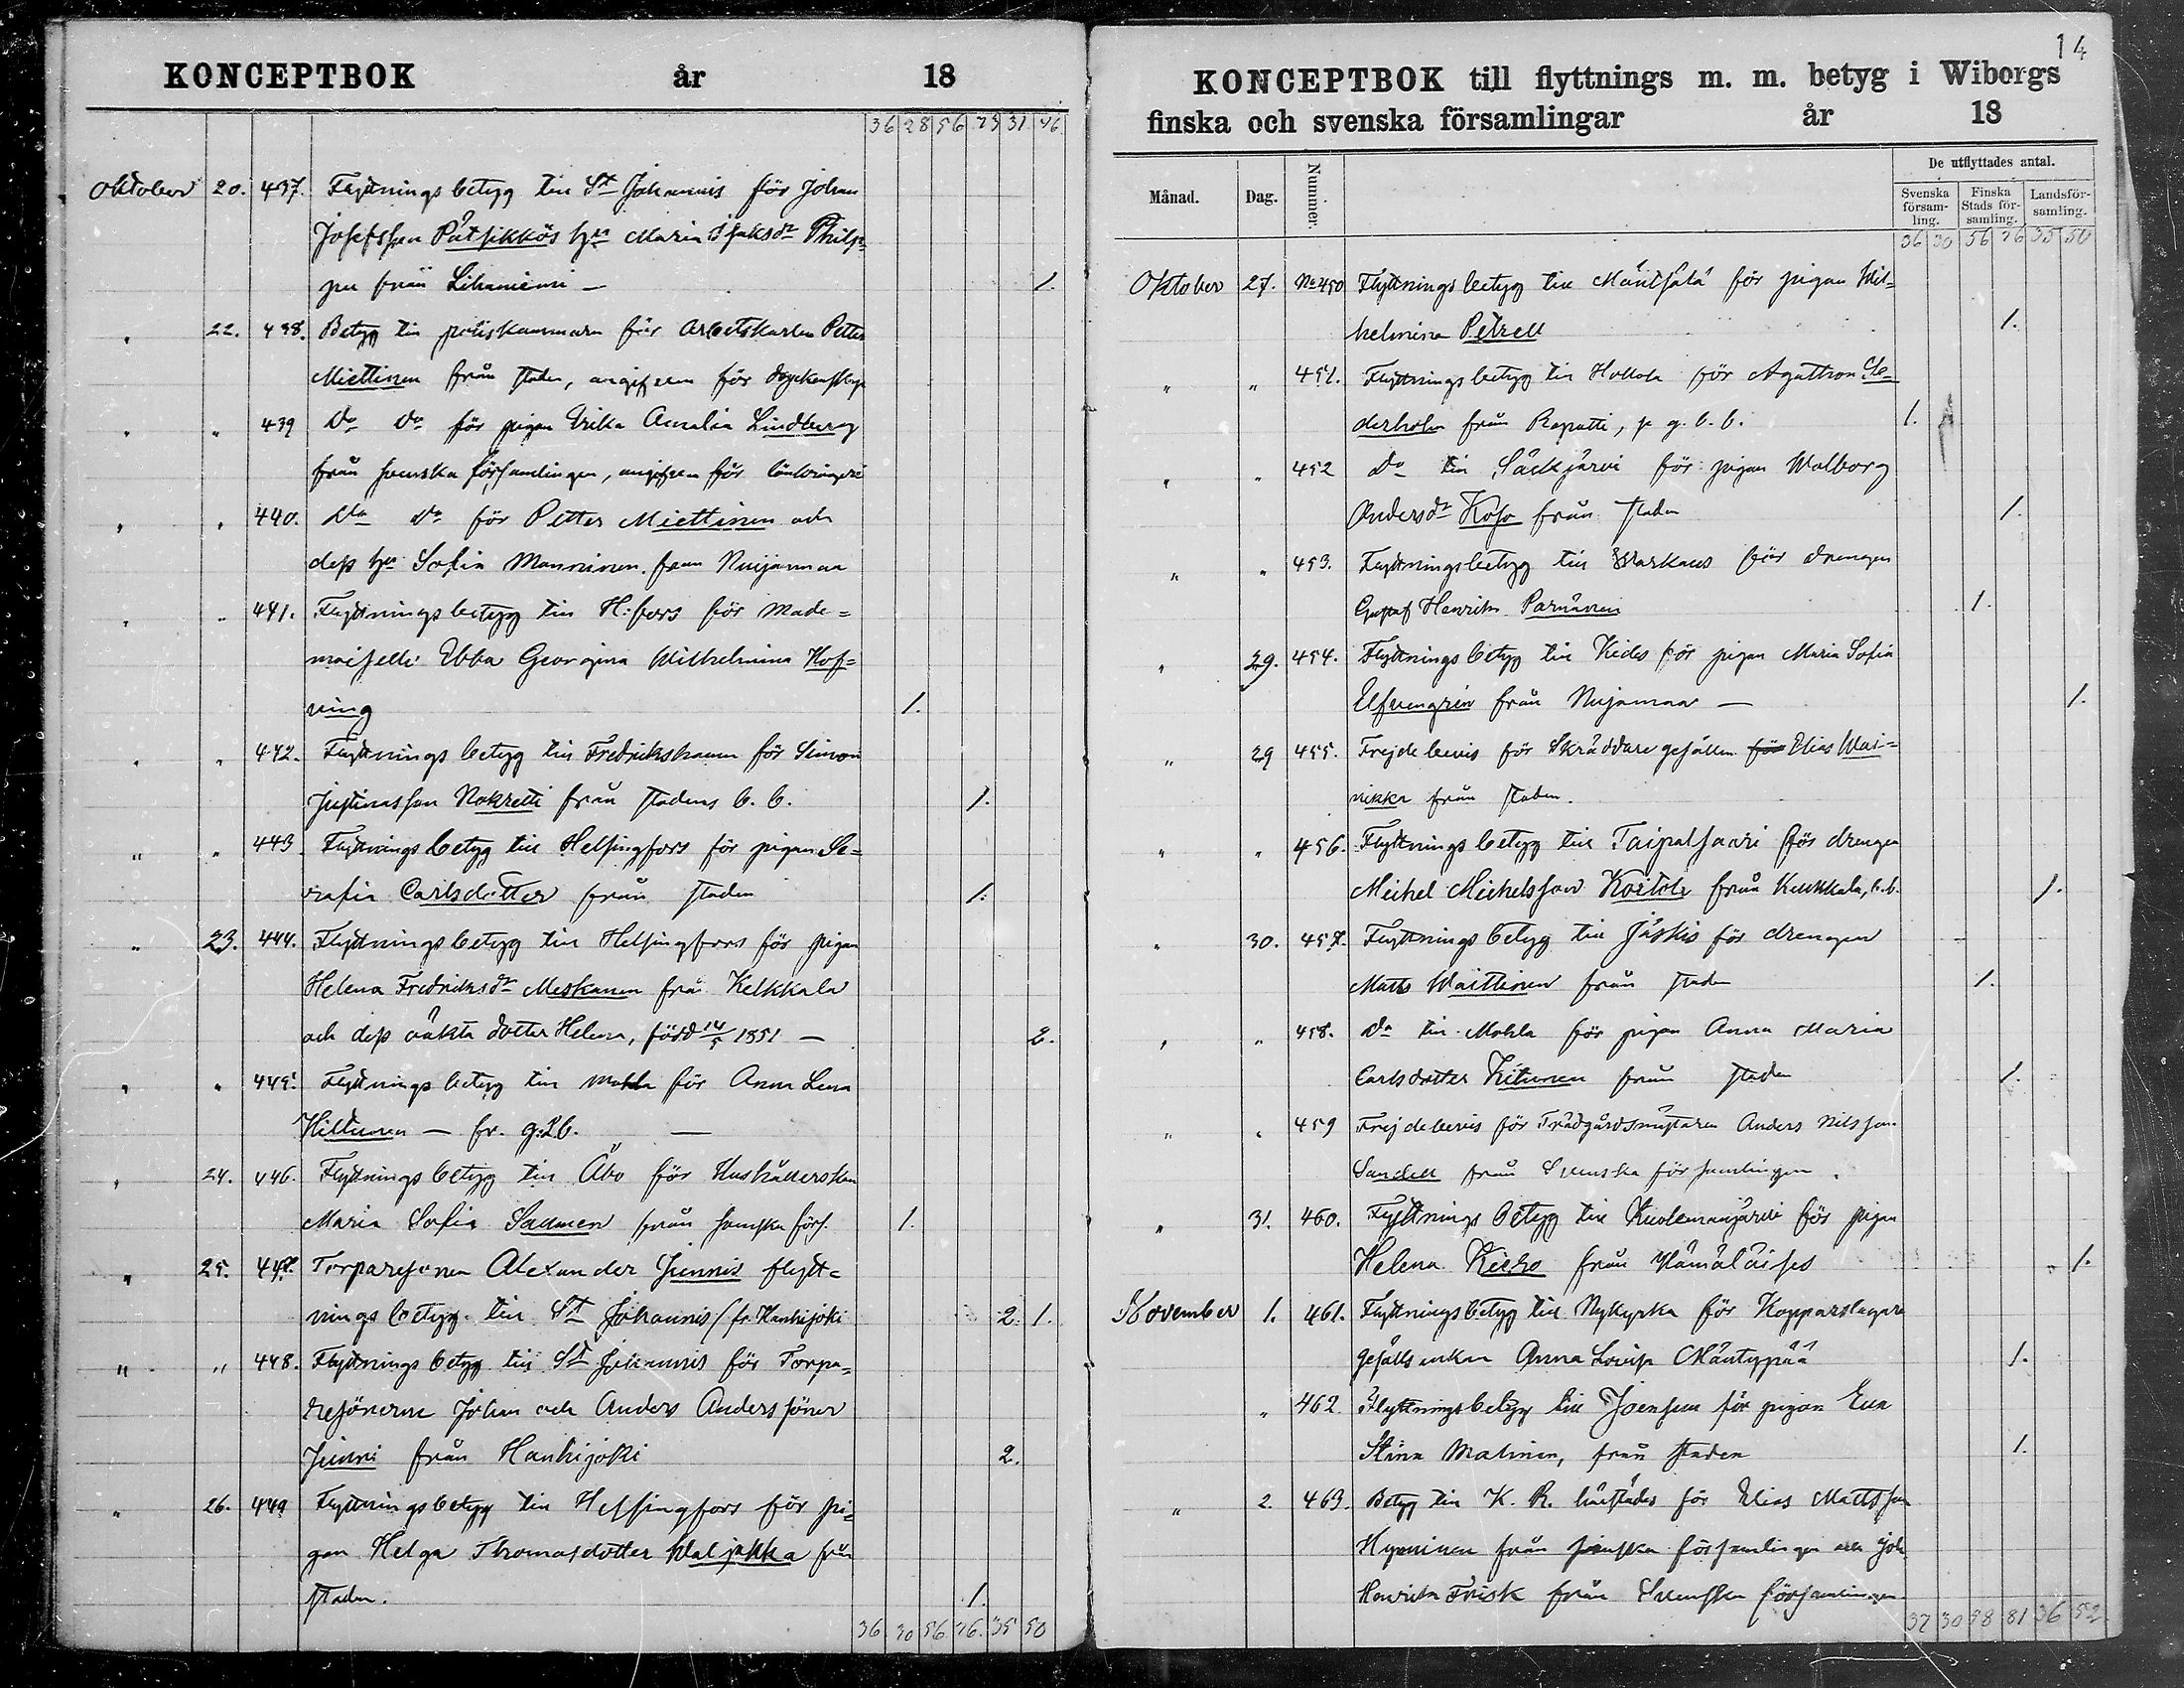 KONCEPTBOK år 18
36 28 56 75 31 46
Oktober 20. 437. Flyttningsbetyg till St Johannis för Johan
Josefsson Pätsikkös hu Maria Isaksdr Philp=
pu från Lihaniemi — 1.
" 22. 438. Betyg till poliskammaren för arbetskarlen Petter
Miettinen från staden, angifven för
" " 439 do do för pigan Erika Amalia Lindberg
från svenska församlingen, angifven för lönkrögeri
" " 440. do do för Petter Miettinen och
dess hu Sofia Manninen från Nuijamaa
" " 441. Flyttningsbetyg till H:fors för Made=
moiselle Ebba Georgina Wilhelmina Hof=
ving 1.
" " 442. Flyttningsbetyg till Fredrikshamn för Simon
Justinasson Nokretti från stadens b. b. 1.
" " 443 Flyttningsbetyg till Helsingfors för pigan Se=
rafia Carlsdotter från staden 1.
" 23. 444. Flyttningsbetyg till Helsingfors för pigan
Helena Fredriksdr Meskanen från Kelkkala
och dess oäkta dotter Helena, född 14/5 1851 — 2.
" " 445. Flyttningsbetyg till Mohla för Anna Lena
Hiltunen — fr. g. b. —
" 24. 446. Flyttningsbetyg till Åbo för Hushållerskan
Maria Sofia Saumen från svenska förs. 1.
" 25. 447. Torparesonen Alexander Junnis flytt=
ningsbetyg till St Johannis (fr. Hankijoki 2. 1.
" " 448. Flyttningsbetyg till St Johannis för Torpa=
resönerne Johan och Anders Anderssöner
Junni från Hankijoki 2.
" 26. 449 Flyttningsbetyg till Helsingfors för pi=
gan Helga Thomasdotter Waljakka från
staden. 1.
36 30 56 76. 35 50
14
KONCEPTBOK till flyttnings m. m. betyg i Wiborgs
finska och svenska församlingar år 18
Månad. Dag. Nummer. De utflyttades antal.
Svenska försam-ling. Finska Stads för-samling. Landsför-samling.
36 30 56 76 35 50
Oktober 27. No 450 Flyttningsbetyg till Mäntsälä för pigan Wil=
helmina Petrell 1.
" " 451. Flyttningsbetyg till Hollola för Agathon Ce=
derholm från Rapatti, p g. b. b. 1.
" " 452 do till Säckjärvi för pigan Walborg
Andersdr Koso från staden 1.
" " 453. Flyttningsbetyg till Warkaus för drengen
Gustaf Henrik Parnänen 1.
" 29. 454. Flyttningsbetyg till Kides för pigan Maria Sofia
Elfvengren från Nujamaa — 1.
" 29 455. Frejdebevis för Skräddaregesällen för Elias Wai=
nikka från staden.
" " 456. Flyttningsbetyg till Taipalsaari för drengen
Michel Michelsson Koitola från Kukkala, b.b. 1.
" 30. 457. Flyttningsbetyg till Jäskis för drengen
Matts Waittinen från staden 1.
" " 458. do till Mohla för pigan Anna Maria
Carlsdotter Kitunen från staden 1.
" " 459 Frejdebevis för Trädgårdsmästaren Anders Nilsson
Sandell från Svenska församlingen.
" 31. 460. Flyttningsbetyg till Kuolemanjärvi för pigan
Helena Kieho från Hämäläises 1.
November 1. 461. Flyttningsbetyg till Nykyrka för Kopparslagare
gesällsenkan Anna Lovisa Mäntypää 1.
" 462. Flyttningsbetyg till Joensuu för pigan Eva
Stina Malinen, från staden 1.
" 2. 463. Betyg till K. R. härstädes för Elias Mattsson
Hyvninen från finska församlingen och Joh.
Henrik Frisk från Svenska församlingen
37 30 58 81 36 52